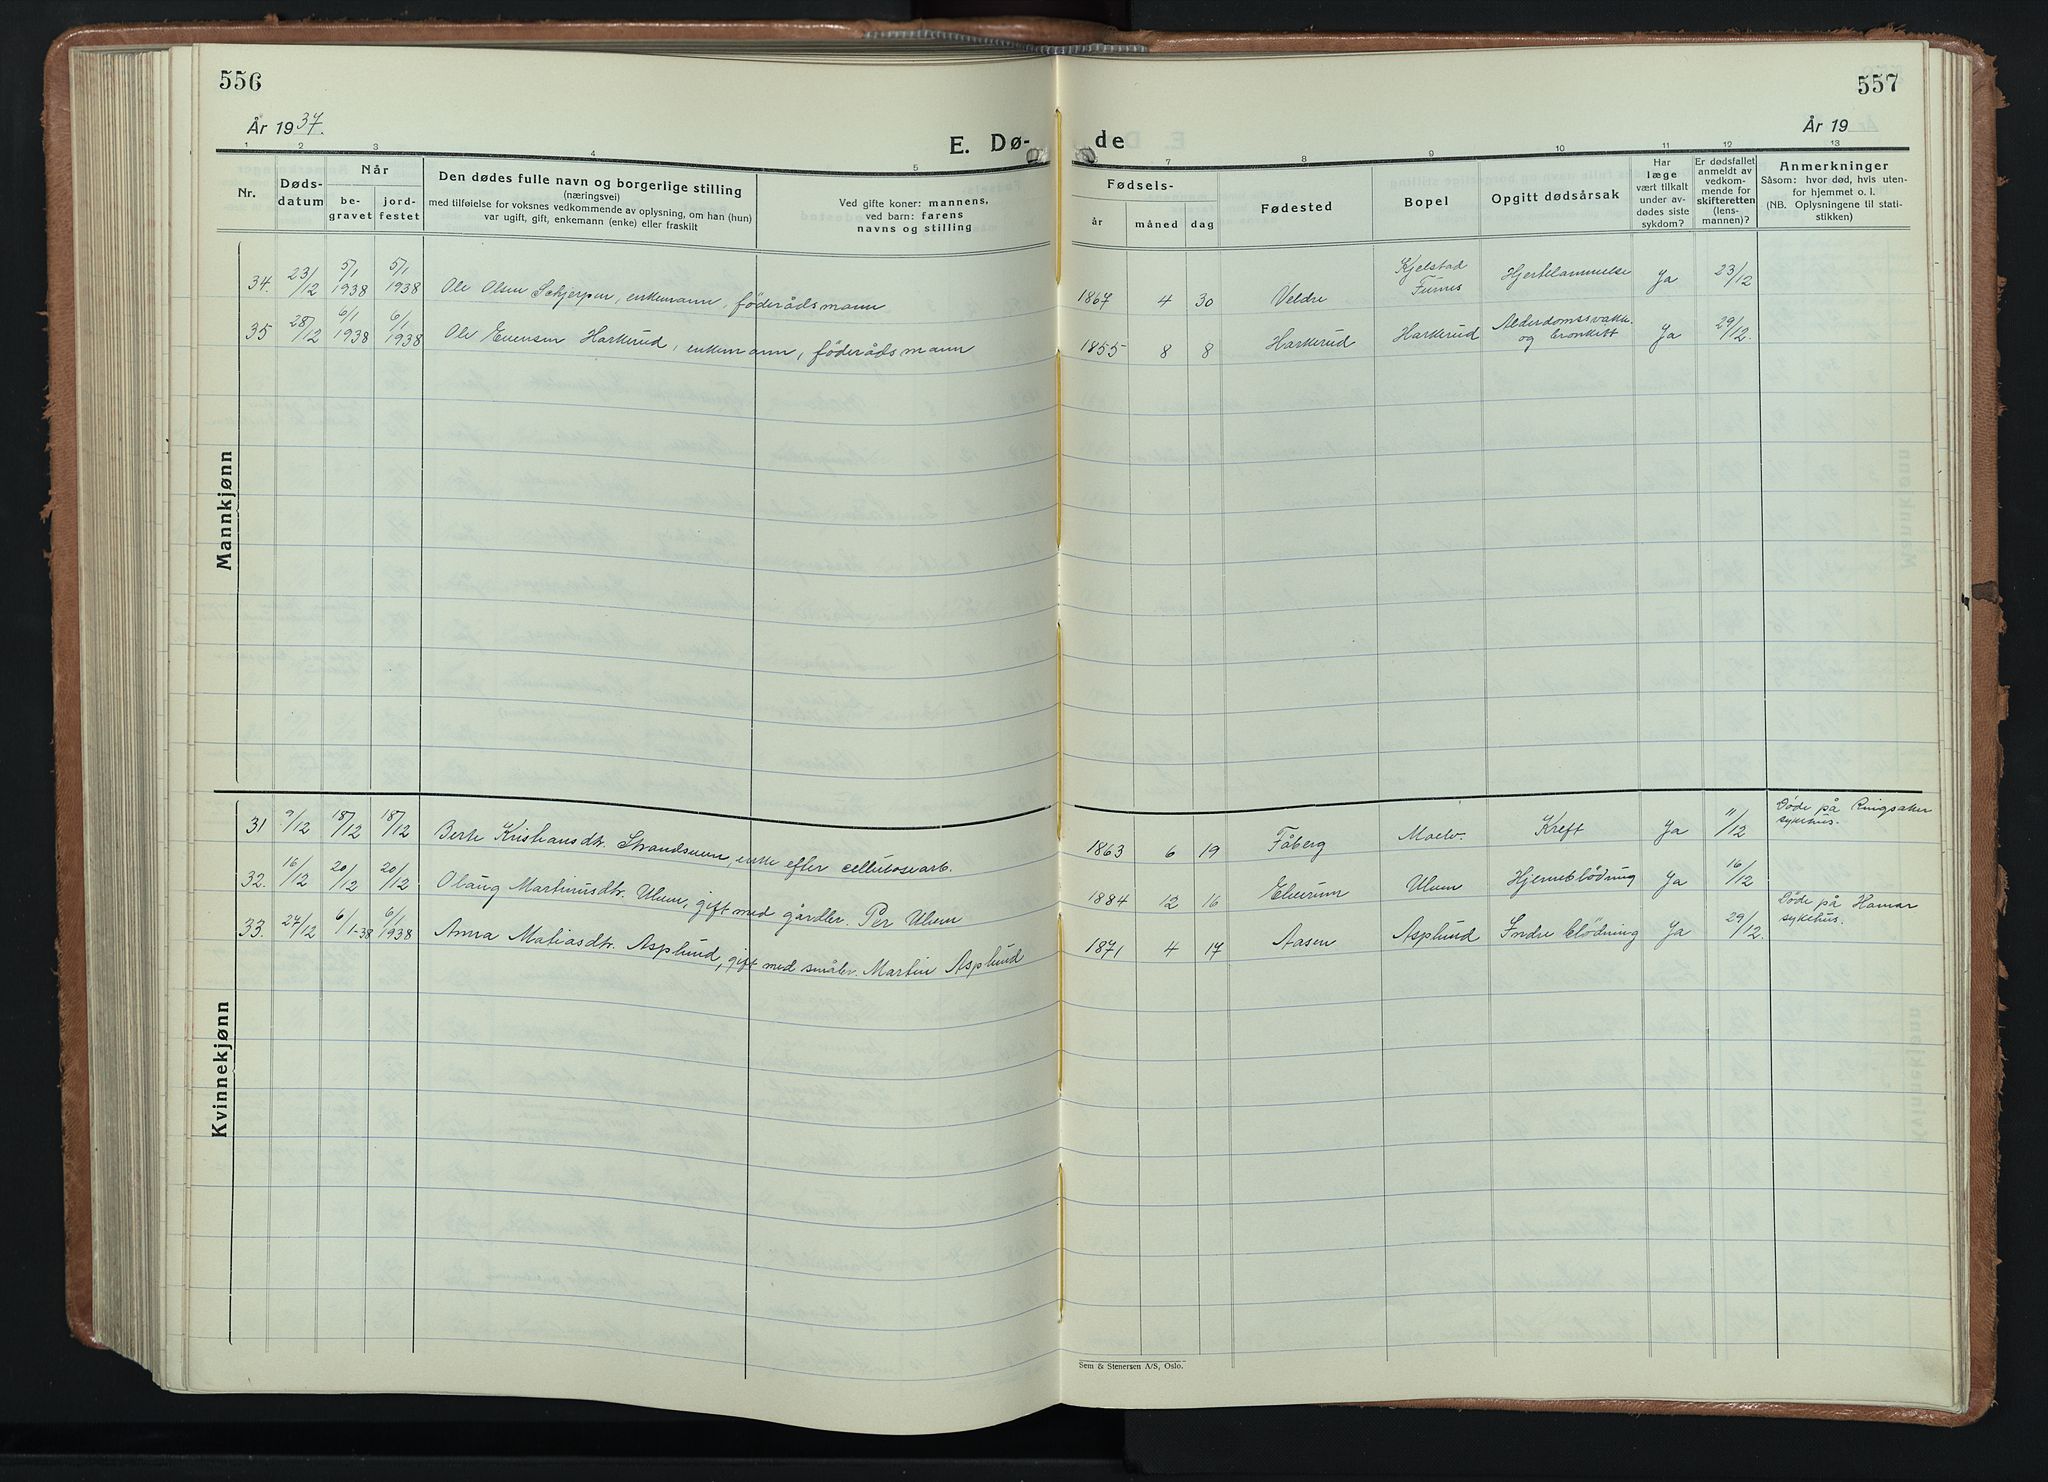 556
År 1937.
E. Dø-
1 2 3 4 5
Nr.
Døds-
datum
Når
be-
gravet
jord-
festet
Den dødes fulle navn og borgerlige stilling
(næringsvei)
med tilføielse for voksnes vedkommende av oplysning, om han (hun)
var ugift, gift, enkemann (enke) eller fraskilt
Ved gifte koner: mannens,
ved barn: farens
navns og stilling
Mannkjønn
34. 23/12 5/1 1938 5/1 1938 Ole Olsen Schjerpen, enkemann, föderådsmann
35 28/12 6/1 1938 6/1 1938 Ole Evensen Harkerud, enkemann, föderådsmann
Kvinnekjønn
31 9/12 18/12 18/12 Berte Kristiansdtr. Strandseen, enke efter cellulosearb.
32. 16/12 20/12 20/12 Olaug Martinusdtr. Ulven, gift med gårdbr. Per Ulven
33. 27/12 6/1-38 6/1 1938 Anna Matiasdtr. Asplund, gift med småbr. Martin Asplund
557
År 19
de
7 8 9 10 11 12 13
Fødsels-
år måned dag
Fødested
Bopel
Opgitt dødsårsak
Har
læge
vært tilkalt
under av-
dødes siste
sykdom?
Er dødsfallet
anmeldt av
vedkom-
mende for
skifteretten
(lens-
mannen)?
Anmerkninger
Såsom: hvor død, hvis uten-
for hjemmet o. l.
(NB. Oplysningene til stati-
stikken)
1867 4 30 Veldre Kjelstad Furnes Hjertelammelse Ja 23/12
1855 8 8 Harkerud Harkerud Alderdomssvakh. og bronkitt Ja 29/12.
1863 6 19 Fåberg Moelv. Kreft Ja 11/12 Døde på Ringsaker sykehus.
1884 12 16 Elverum Ulven Hjerneblødning Ja 16/12
1871 4 17 Aasen Asplund Indre blödning Ja 29/12. Døde på Hamar sykehus.
Sem & Stenersen A/S, Oslo.